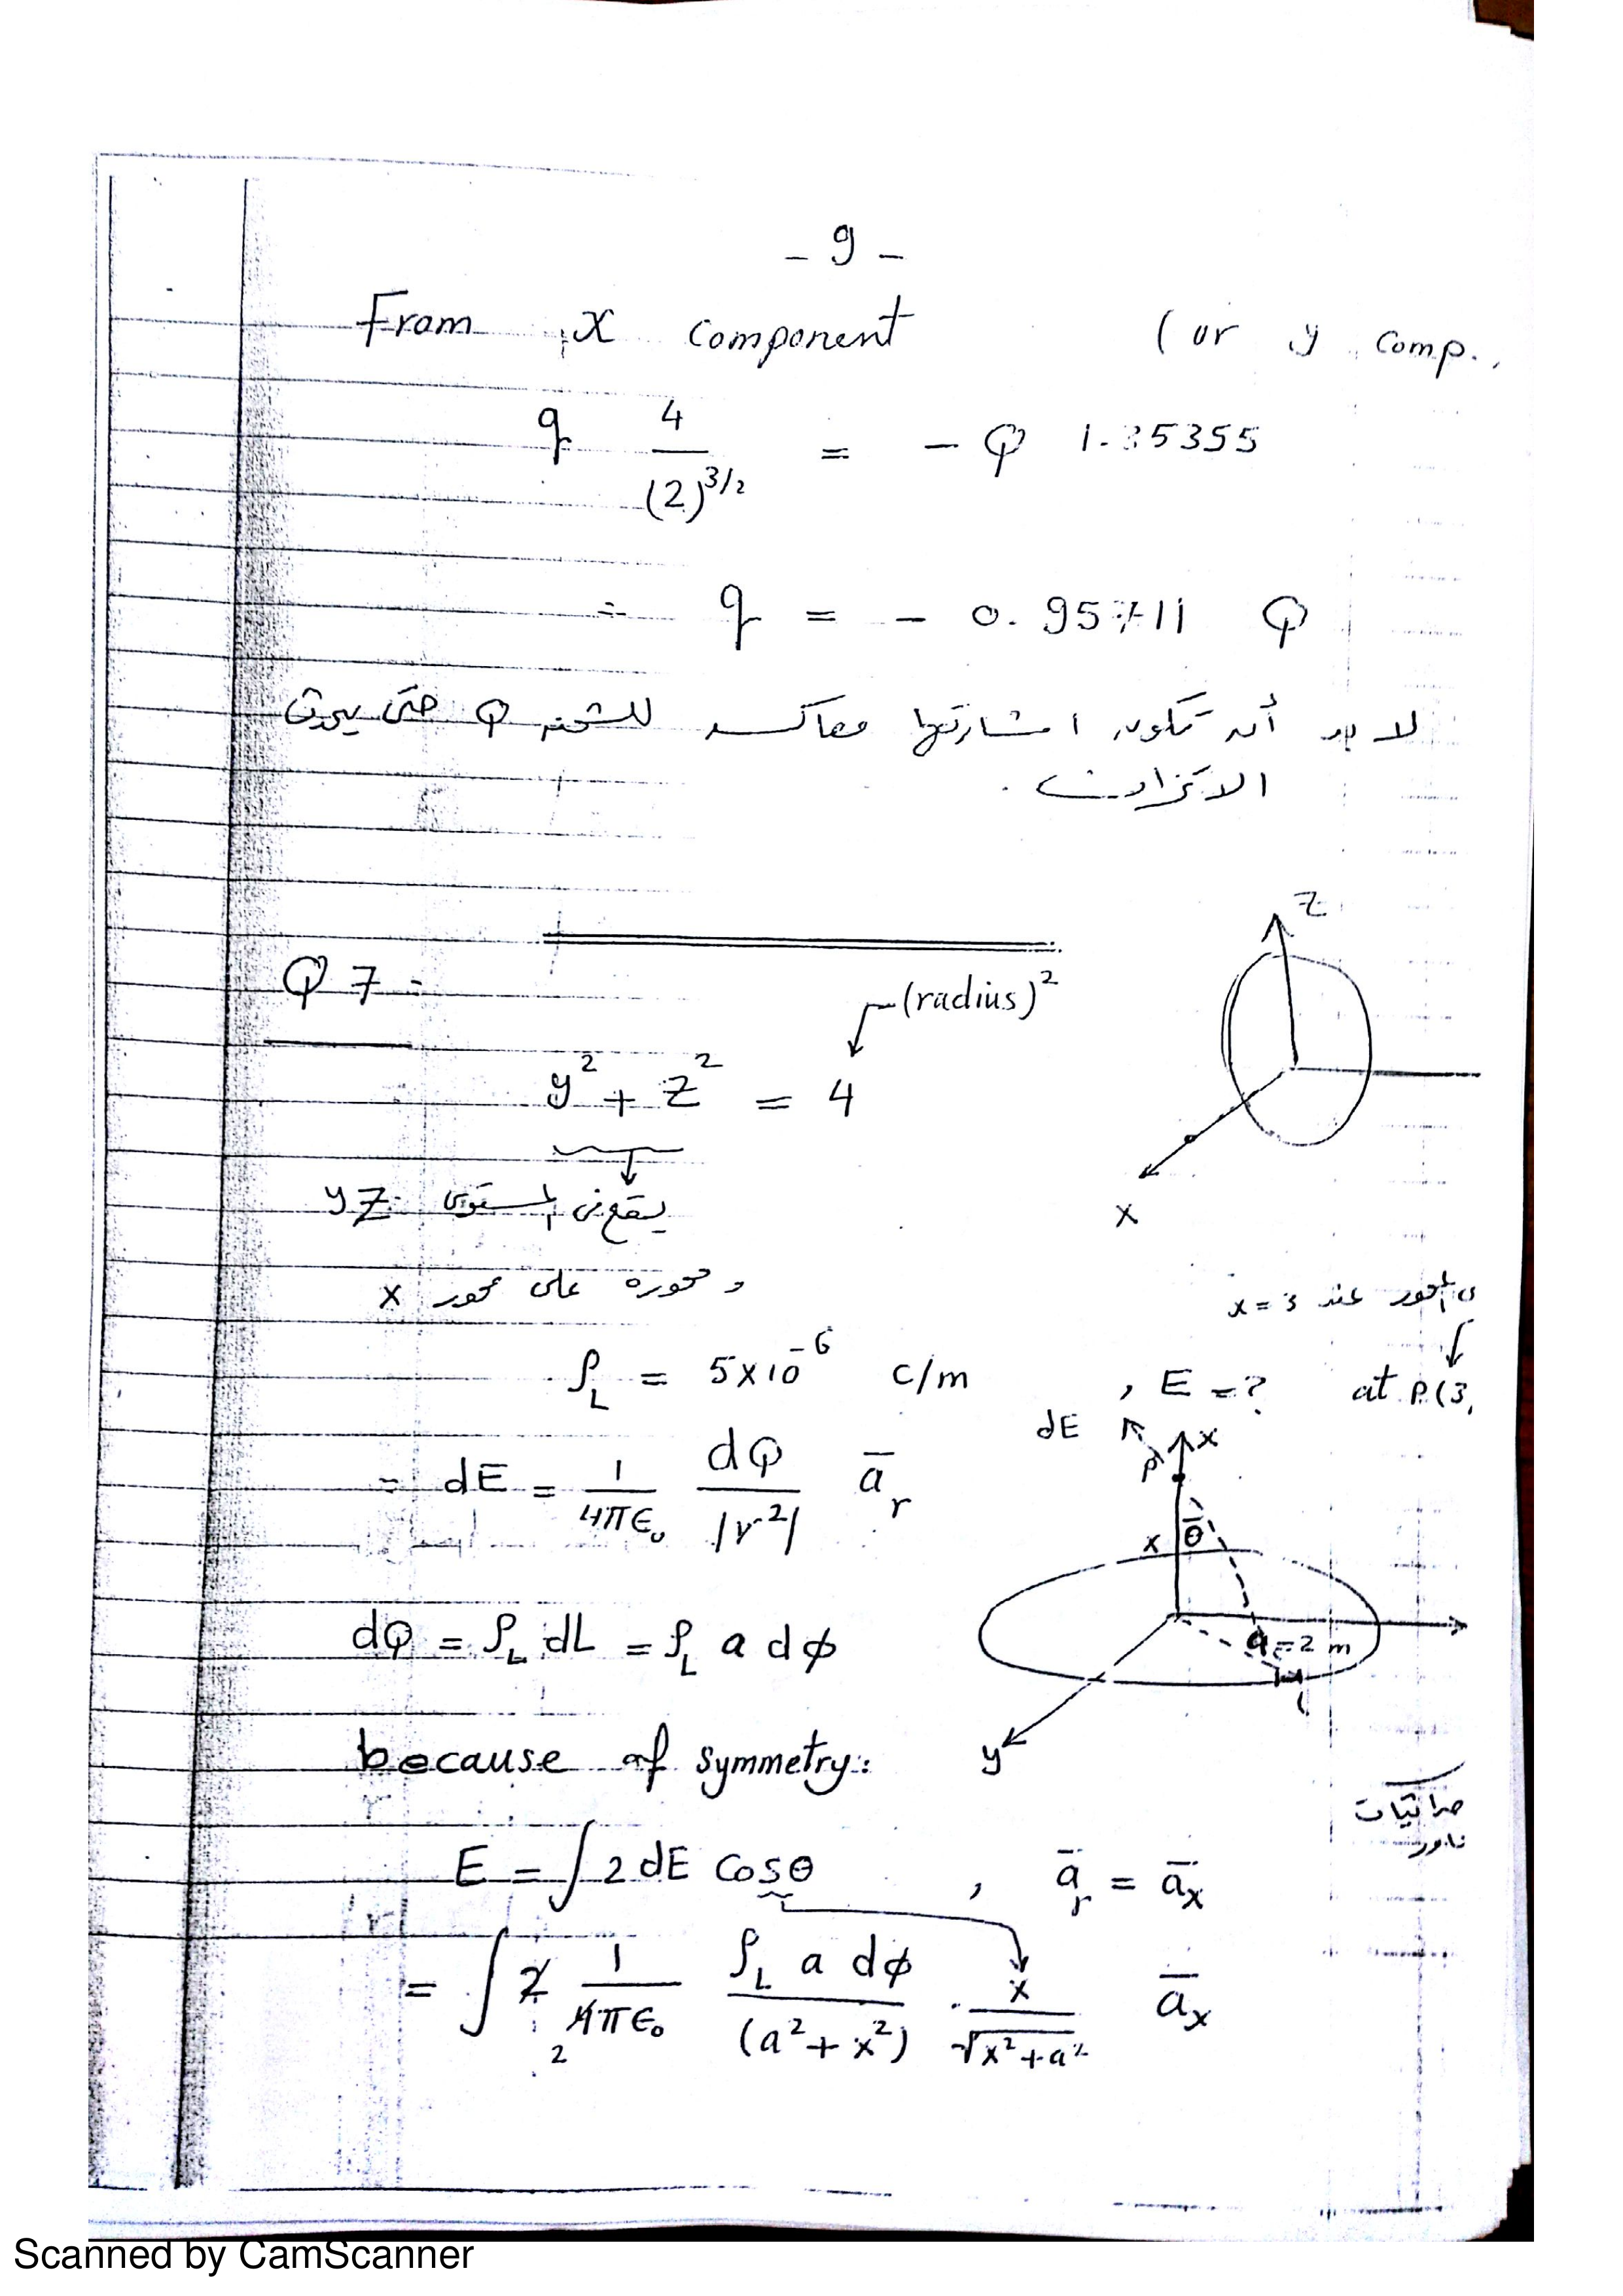 - 9 -
From x component (or y comp.
q 4/(2)^3/2 = - Q 1.35355
∴ q = - 0.95711 Q
لا بد أن تكون اشارتها معاكسه للشحنه Q حتى يحدث
الاتزان .
z
Q 7 :
(radius)²
y² + z² = 4
x
يقع فى المستوى yz
و محوره على محور x
المحور عند x = 3
ρ_L = 5×10⁻⁶ c/m , E = ? at P(3,
dE P x
= dE = 1/4πε₀ dQ/|r²| ā_r
x θ
dQ = ρ_L dL = ρ_L a dφ
a = 2 m
because of symmetry:
y
E = ∫ 2 dE cosθ , ā_r = ā_x
= ∫ 2 1/4πε₀ ρ_L a dφ/(a² + x²) · x/√x² + a² ā_x
2
Scanned by CamScanner